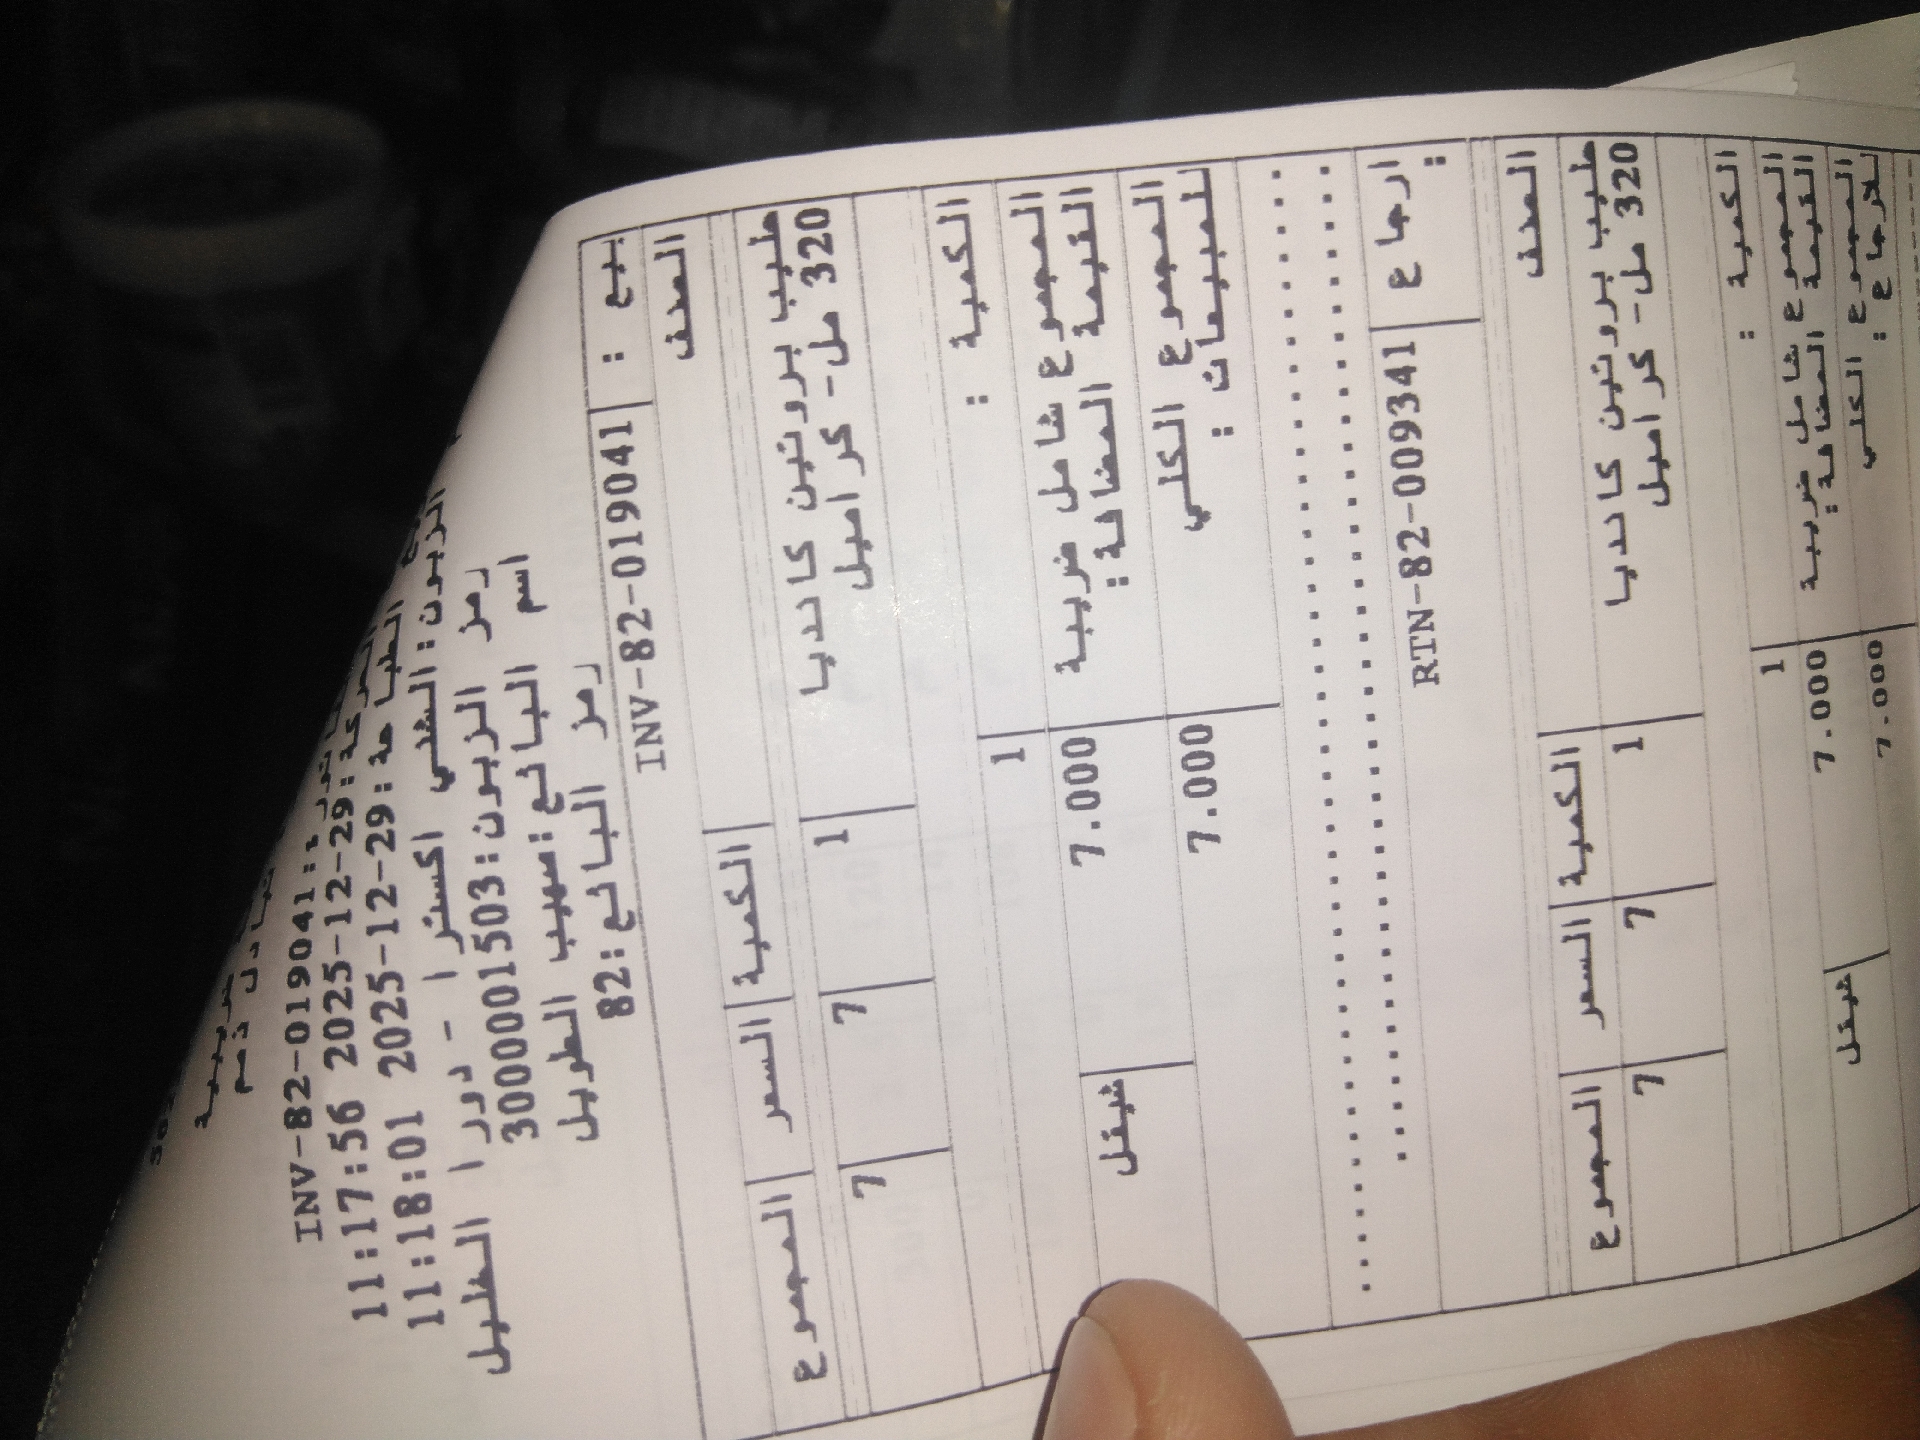 ضريبية
تبادل ذمم
INV-82-019041:
2025-12-29 11:17:56
الطباعة: 2025-12-29 11:18:01
الزبون: الشني اكسترا - دورا الخليل
رمز الزبون: 3000001503
اسم البائع: صهيب الطويل
رمز البائع: 82
بيع : INV-82-019041
الصنف الكمية السعر المجموع
حليب بروتين كانديا 1 7 7
320 مل- كراميل
الكمية : 1
المجموع شامل ضريبة 7.000
القيمة المضافة:
المجموع الكلي 7.000 شيقل
للمبيعات :
ارجاع : RTN-82-009341
الصنف الكمية السعر المجموع
حليب بروتين كانديا 1 7 7
320 مل- كراميل
الكمية : 1
المجموع شامل ضريبة 7.000
القيمة المضافة:
المجموع الكلي 7.000 شيقل
للارجاع :